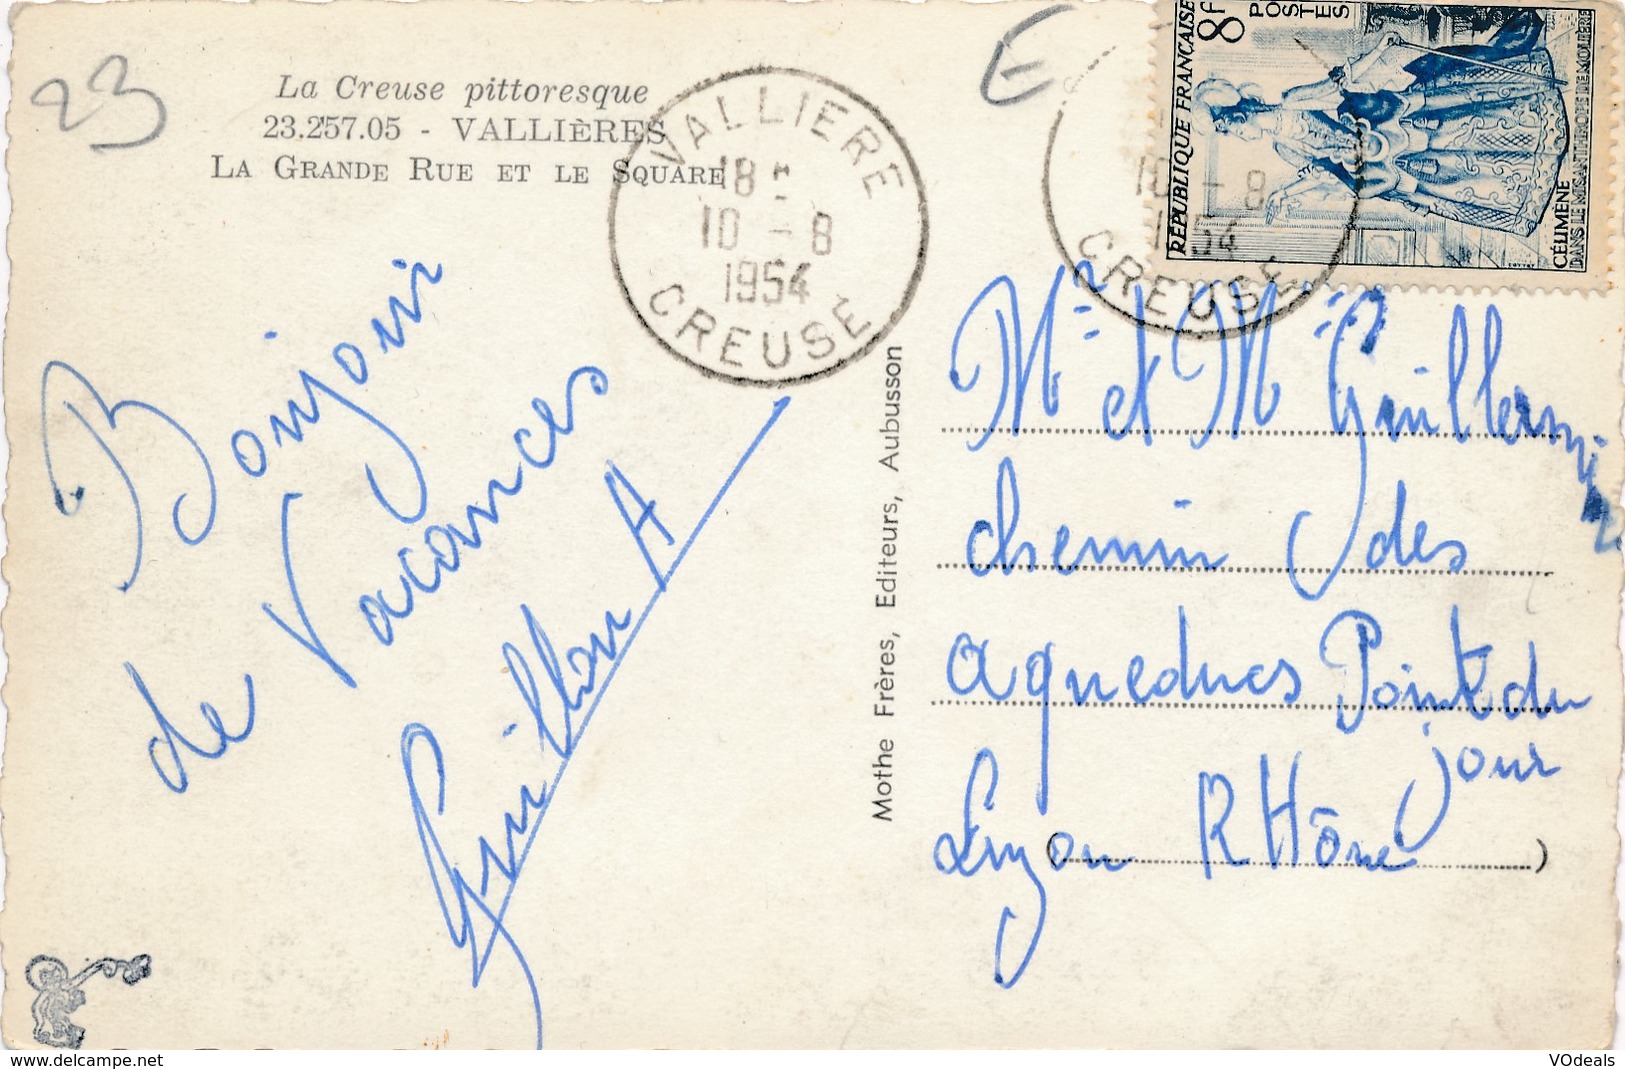 23
La Creuse pittoresque
23.257.05 - VALLIÈRES
LA GRANDE RUE ET LE SQUARE
VALLIERE
18 H
10 - 8
1954
CREUSE
E
10 - 8
1954
CREUSE
RÉPUBLIQUE FRANÇAISE
8F
POSTES
CÉLIMÈNE
DANS LE MISANTHROPE DE MOLIÈRE
Bonjour
de Vacances
Guillon A
Mothe Frères, Editeurs, Aubusson
Mr et Mme
chemin des
aqueducs Point du
jour
Lyon RHône
( )
www.delcampe.net
VOdeals